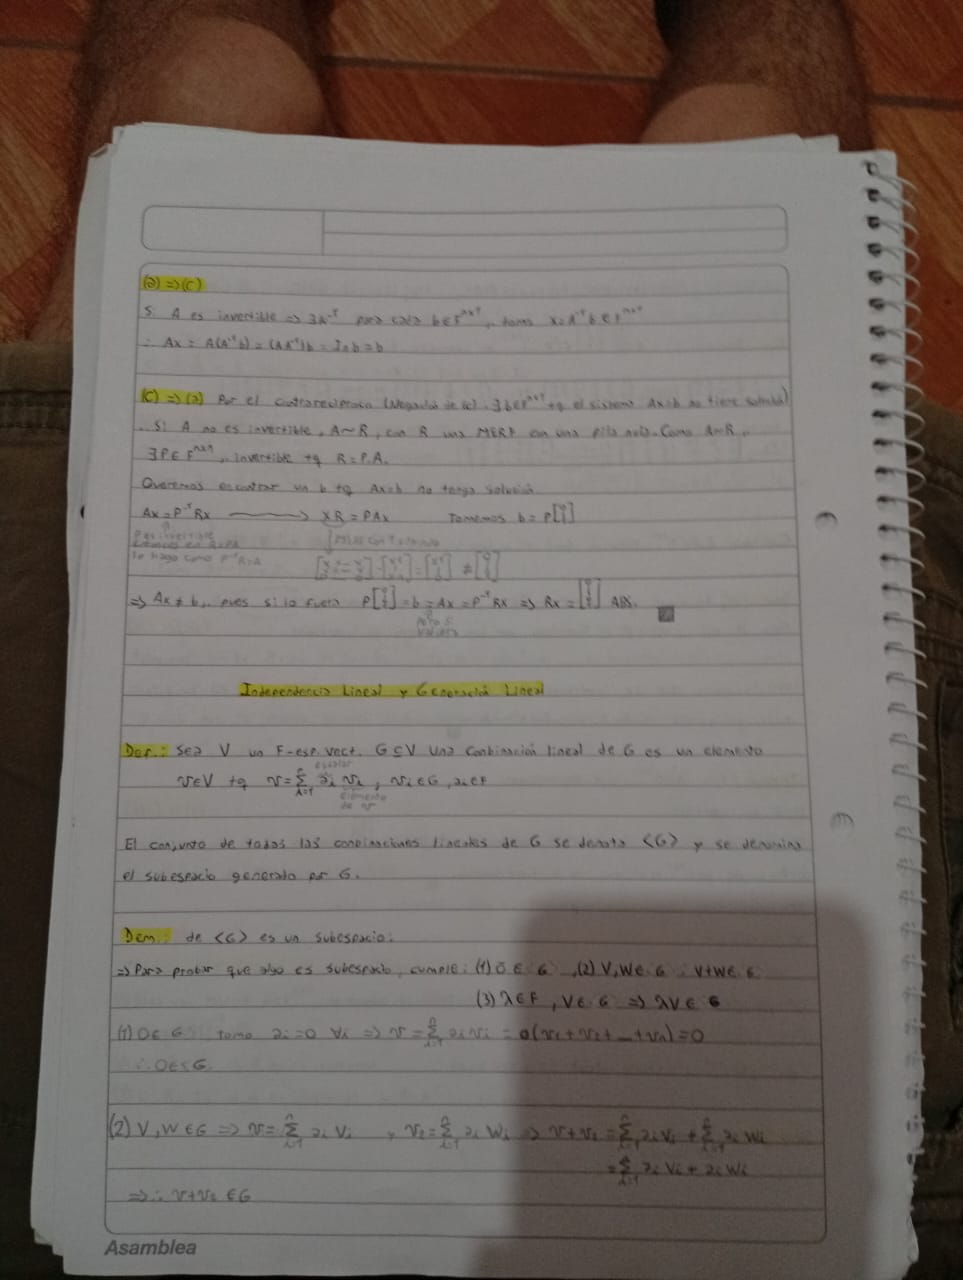 (a) => (c)
Si A es invertible => ∃A⁻¹ para cada b ∈ Fⁿˣ¹, tomo x = A⁻¹b ∈ Fⁿˣ¹
∴ Ax = A(A⁻¹b) = (AA⁻¹)b = Inb = b
(c) => (a) Por el contrareciproco (Negación de (c): ∃b∈Fⁿˣ¹ tq el sistema Ax=b no tiene solución)
Si A no es invertible, A~R, con R una MERF con una fila nula. Como A~R,
∃P∈Fⁿˣⁿ, invertible tq R = P.A.
Queremos encontrar un b tq Ax=b no tenga solución
Ax = P⁻¹Rx ⟶ XR = PAx Tomemos b = P
Por invertible
lo hago como P⁻¹R=A
=> Ax ≠ b, pues si lo fuera P = b = Ax = P⁻¹Rx => Rx = ABS.
Independencia Lineal y Generación Lineal
Def.: Sea V un F-esp. vect. G ⊆ V una combinación lineal de G es un elemento
escalar
v∈V tq v = Σ ai vi, vi ∈ G, ai ∈ F
elemento
de v
El conjunto de todas las combinaciones lineales de G se denota <G> y se denomina
el subespacio generado por G.
Dem.: de <G> es un subespacio:
=> Para probar que algo es subespacio, cumple: (1) 0 ∈ G, (2) V, W ∈ G ∴ V+W ∈ G
(3) λ∈F, V ∈ G => λV ∈ G
(1) 0 ∈ G tomo ai = 0 ∀i => v = Σ ai vi = 0(v1 + v2 + ... + vn) = 0
∴ 0 ∈ G.
(2) V, W ∈ G => v = Σ ai Vi y v2 = Σ ai Wi => v+v2 = Σ ai Vi + Σ ai Wi
= Σ ai Vi + ai Wi
=> ∴ v+v2 ∈ G
Asamblea